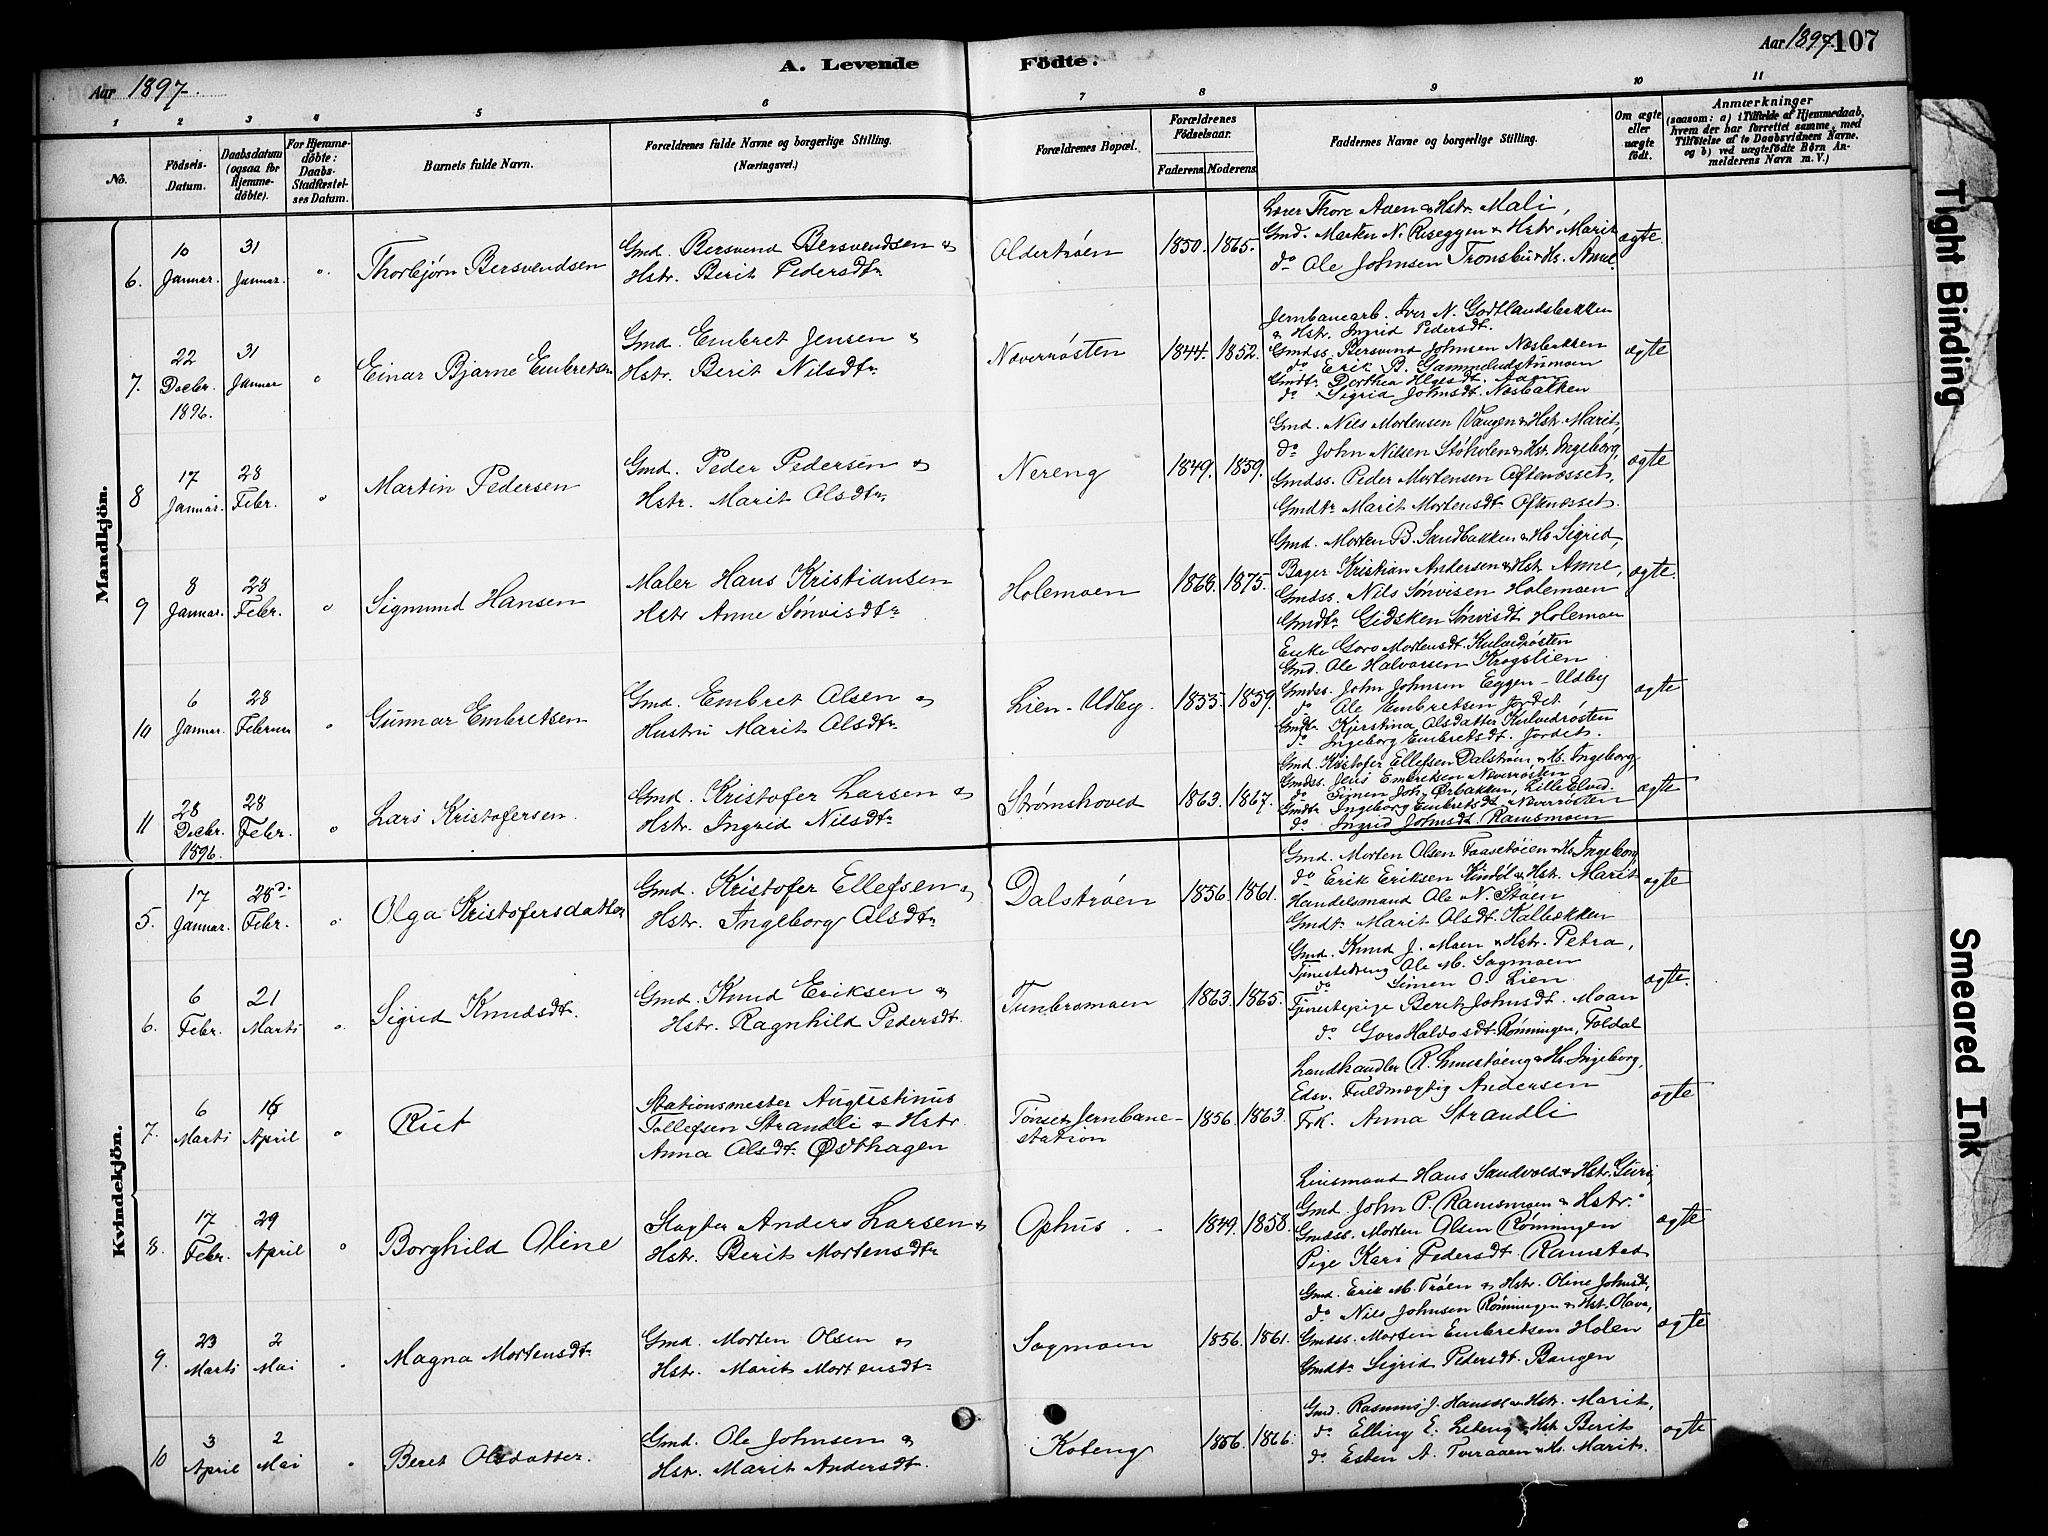 Aar 1897.
A. Levende Födte.
Aar 1897. 107
1 2 3 4 5 6 7 8 9 10 11
No.
Födsels-Datum.
Daabsdatum (ogsaa for Hjemmedöbte).
For Hjemmedöbte: Daabs-Stadfæstelses Datum.
Barnets fulde Navn.
Forældrenes fulde Navne og borgerlige Stilling. (Næringsvei.)
Forældrenes Bopæl.
Forældrenes Födselsaar.
Faderens. Moderens.
Faddernes Navne og borgerlige Stilling.
Om ægte eller uægte födt.
Anmærkninger (saasom: a) i Tilfælde af Hjemmedaab, hvem der har forrettet samme, med Tilföielse af to Daabsvidners Navne. og b) ved uægtefödte Börn Anmelderens Navn m. V.)
Mandkjön.
6. 10 Januar. 31 Januar. " Thorbjørn Bersvendsen
Gmd. Bersvend Bersvendsen &
Hstr. Berit Pedersdtr.
Oldertrøen 1850. 1865.
Lærer Thore Aaen & Hstr. Mali,
Gmd. Morten N. Røseggen & Hstr. Marit
do Ole Johnsen Tronsbu & Hs. Anne.
ægte
7. 22 Decbr. 1896. 31 Januar " Einar Bjarne Embretsen
Gmd. Embret Jensen &
Hstr. Berit Nilsdtr.
Næverrøsten 1844. 1852.
Jernbanearb. Iver N. Godtlandsbakken
& Hstr. Ingrid Pedersdt.
Gmdss. Bersvend Johnsen Næsbakken
do Erik B. Gammeludstumoen
Gmdtr. Dorthea Aaen
do Sigrid Johnsdt. Næsbakken
ægte
8 17 Januar. 28 Febr. " Martin Pedersen
Gmd. Peder Pedersen &
Hstr. Marit Olsdtr.
Nereng 1849. 1859.
Gmd. Nils Mortensen Vangen & Hstr. Marit,
do John Nilsen Støholen & Hstr. Ingeborg,
Gmdss. Peder Mortensen Oftenæsset,
Gmdtr. Marit Mortensdt. Oftenæsset.
ægte
9 8 Januar. 28 Febr. " Sigmund Hansen
Maler Hans Kristiansen
Hstr Anne Sønvisdtr.
Holemoen 1868. 1875.
Gmd. Morten B. Sandbakken & Hs. Sigrid,
Bager Kristian Andersen & Hst. Anne,
Gmdss. Nils Sønvisen Holemoen
Gmdtr. Gidsken Sønvisdt Holemoen
ægte.
10 6 Januar. 28 Februar " Gunnar Embretsen
Gmd. Embret Olsen &
Hustru Marit Olsdtr.
Lien-Udby. 1855. 1859.
Enke Goro Mortensdt. Kulvedrøsten
Gmd. Ole Halvorsen Krogslien
Gmdss. John Johnsen Eggen-Udby
do Ole Embretsen Jordet
Gmdtr. Kjerstina Olsdatter Kulvedrøsten
do Ingeborg Embretsdt. Jordet.
ægte
11 28 Decbr. 1896. 28 Febr. " Lars Kristofersen.
Gmd. Kristofer Larsen &
Hstr. Ingrid Nilsdtr.
Strømshoved 1863. 1867.
Gmd. Kristofer Ellefsen Dalstrøen & Hs. Ingeborg,
Gmdss. Jens Embretsen Næverrøsten
do Simen Joh. Ørbakken, Lille Elvd.
Gmdtr. Ingeborg Embretsdt Næverrøsten
do Ingrid Johnsdt. Ramsmoen
ægte
Kvindekjön.
5. 17 Januar. 28d. Febr. " Olga Kristofersdatter
Gmd. Kristofer Ellefsen &
Hstr. Ingeborg Olsdtr.
Dalstrøen 1856. 1861.
Gmd. Morten Olsen Faasetøien & Hs. Ingeborg
do Erik Eriksen & Hstr. Marit
Handelsmand Ole N. Støen
Gmdtr. Marit Olsdt. Kalbækken
ægte
6. 6 Febr. 21 Marts " Sigrid Knudsdt.
Gmd. Knud Eriksen &
Hstr. Ragnhild Pedersdt.
Tunbromoen 1863. 1865.
Gmd. Knud J. Moen & Hstr. Petra,
Tjenestedreng Ole M. Sagmoen
do Simen O. Lien
Tjenestepige Beret Johnsdt. Moan
do Goro Halvosdt. Rønningen, Foldal
ægte.
7. 6 Marts 16 April " Rut
Stationsmester Augustinus
Tollefsen Strandli & Hstr.
Anna Olsdt. Østhagen
Tønset Jernbane-
station
1856. 1863.
Landhandler R. & Hs. Ingeborg,
Edsv. Fuldmægtig Andersen
Frk. Anna Strandli
ægte
8. 17 Febr. 29 April " Borghild Oline
Slagter Anders Larsen &
Hstr. Berit Mortensdtr.
Ophus. 1849. 1858.
Linismand Hans Sandvold & Hstr. Guri,
Gmd. John P. Ramsmoen & Hstr.
Gmdss. Morten Olsen Rønningen
Pige Kari Pedersdt Ramstad
ægte
9. 23 Marts 2 Mai " Magna Mortensdt.
Gmd. Morten Olsen &
Hstr. Marit Mortensdtr.
Sagmoen 1856. 1861.
Gmd. Erik M. Trøen & Hstr. Oline Johnsdt,
do Nils Johnsen Rønningen & Hst. Olava,
Gmdss. Morten Embretsen Holen
Gmdtr. Sigrid Pedersdt. Bangen
ægte
10 3 April 2 Mai " Beret Olsdatter.
Gmd. Ole Johnsen &
Hstr. Marit Andersdt.
Koteng 1856. 1866.
Gmd. Rasmus J. & Hstr. Marit,
do Elling E. & Hst. Berit
do Esten A. Tveraaen & Hs. Marit.
ægte
Tight Binding
Smeared Ink